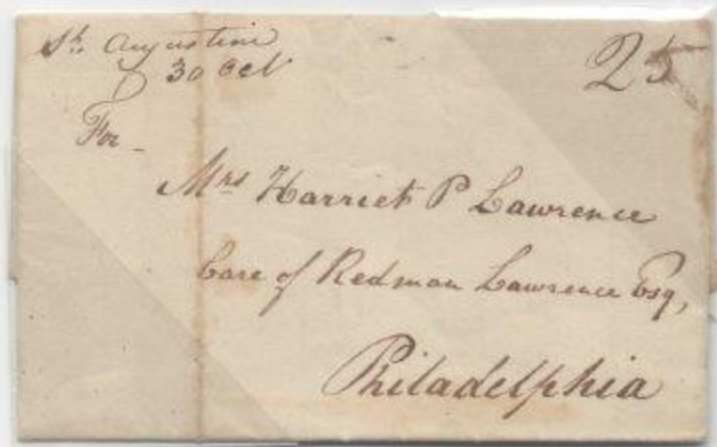 St. Augustine
30 Oct
25
For
Mrs Harriet P Lawrence
Care of Redman Lawrence Esq,
Philadelphia